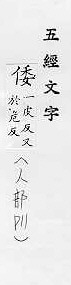 五經文字
倭 一皮反又
於危反
(人部)